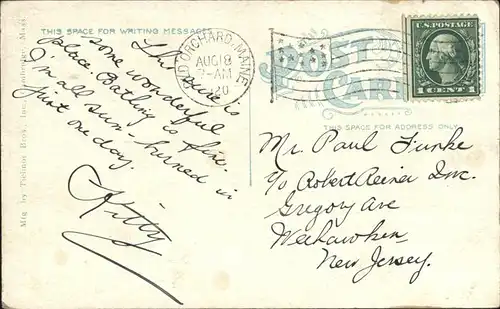 THIS SPACE FOR WRITING MESSAGES
This sure is
some wonderful
place. Bathing is fine.
I'm all sun-burned in
just one day.
Kitty
Mfg by Tichnor Bros., Inc., Cambridge, Mass.
OLD ORCHARD, MAINE
AUG 18
7-AM
1920
POST
CARD
U.S. POSTAGE
1 CENT 1
THIS SPACE FOR ADDRESS ONLY
Mr. Paul Funke
c/o Robert Reiner Inc.
Gregory Ave
Weehawken
New Jersey.